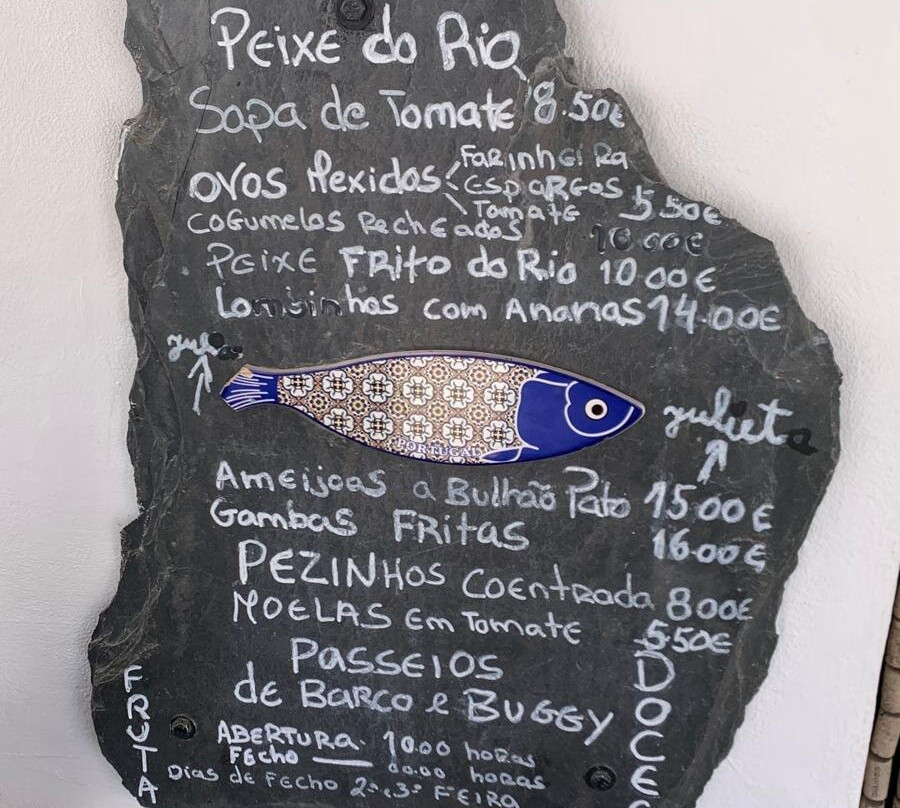 PEIXE do Rio
Sopa de Tomate 8.50€
Ovos Mexidos Farinheira
Espargos
Tomate 5.50€
Cogumelos Recheados 10.00€
PEIXE FRito do Rio 10.00€
Lombinhos com Ananas 14.00€
Julieta
PORTUGAL
Ameijoas a Bulhão Pato 15.00€
Gambas FRitas 16.00€
PEZINHOS COENTRADA 8.00€
MOELAS Em Tomate 5.50€
PASSEIOS
de BARCO e BUGGY
ABERTURA 10.00 horas
Fecho 00.00 horas
Dias de FECHO 2ª e 3ª FEIRA
FRUTA
DOCES